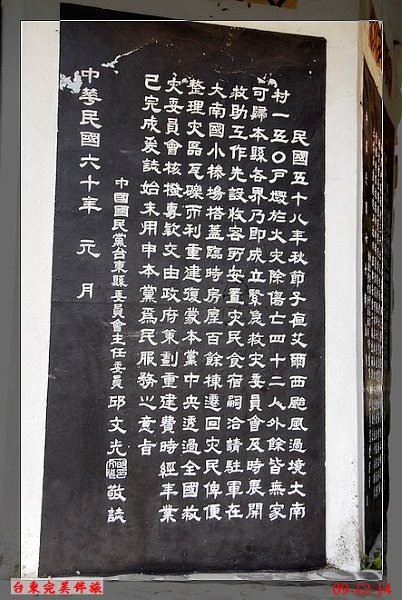 民國五十八年秋節子夜艾爾西颱風過境大南
村一五〇戶燬於火災除傷亡四十二人外餘皆無家
可歸本縣各界乃即成立緊急救災委員會及時展開
救助工作先設收容所安置災民食宿嗣洽請駐軍在
大南國小操場搭蓋臨時房屋百餘棟遷回災民俾便
整理災區瓦礫而利重建復蒙本黨中央透過全國救
災委員會核撥專款交由政府策劃重建費時經年業
已完成爰誌始末用申本黨為民服務之意旨
中國國民黨台東縣委員會主任委員邱文光敬誌
中華民國六十年元月
台東完美佈旅
09-12-14